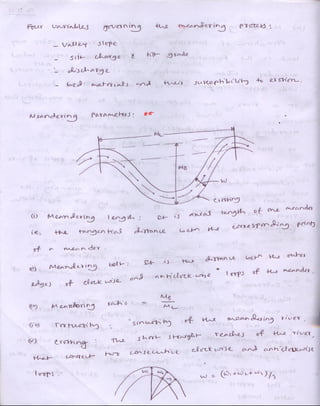 Four variables governing the meandering process:
- Valley slope
- silt charge & its grade
- discharge
- bed materials and their susceptibility to erosion.
Meandering Parameters:
ML
MB
W
Crossing
(i) Meandering length: It is axial length of one meander
ie, the tangential distance betn the corresponding points
of a meander
Meandering belt: It is the distance betn the outer
edges of clock wise and anticlock wise loops of the meander.
Meandering ratio = MB / ML
Tortuosity: sinuosity of the meandering river.
Crossing The short straight reaches of the river,
that connect two consecutive clockwise and anticlockwise
loops